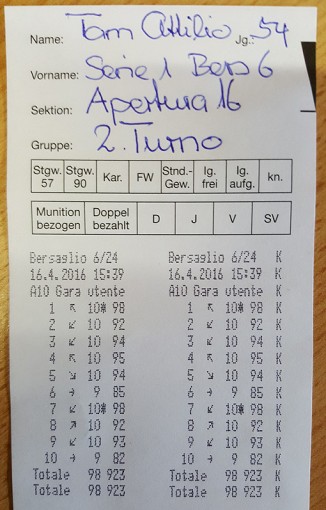 Name: Tam Attilio Jg.: 54
Vorname: Serie 1 Bers 6
Sektion: Apertura 16
Gruppe: 2. Turno
Stgw. 57 Stgw. 90 Kar. FW Stnd.-Gew. lg. frei lg. aufg. kn.
Munition bezogen Doppel bezahlt D J V SV
Bersaglio 6/24 Bersaglio 6/24 K
16.4.2016 15:39 16.4.2016 15:39 K
A10 Gara utente A10 Gara utente K
1 ↖ 10* 98 1 ↖ 10* 98 K
2 ↙ 10 92 2 ↙ 10 92 K
3 ↙ 10 94 3 ↙ 10 94 K
4 ↖ 10 95 4 ↖ 10 95 K
5 ↘ 10 94 5 ↘ 10 94 K
6 → 9 85 6 → 9 85 K
7 ↙ 10* 98 7 ↙ 10* 98 K
8 ↗ 10 92 8 ↗ 10 92 K
9 ↙ 10 93 9 ↙ 10 93 K
10 → 9 82 10 → 9 82 K
Totale 98 923 Totale 98 923 K
Totale 98 923 Totale 98 923 K